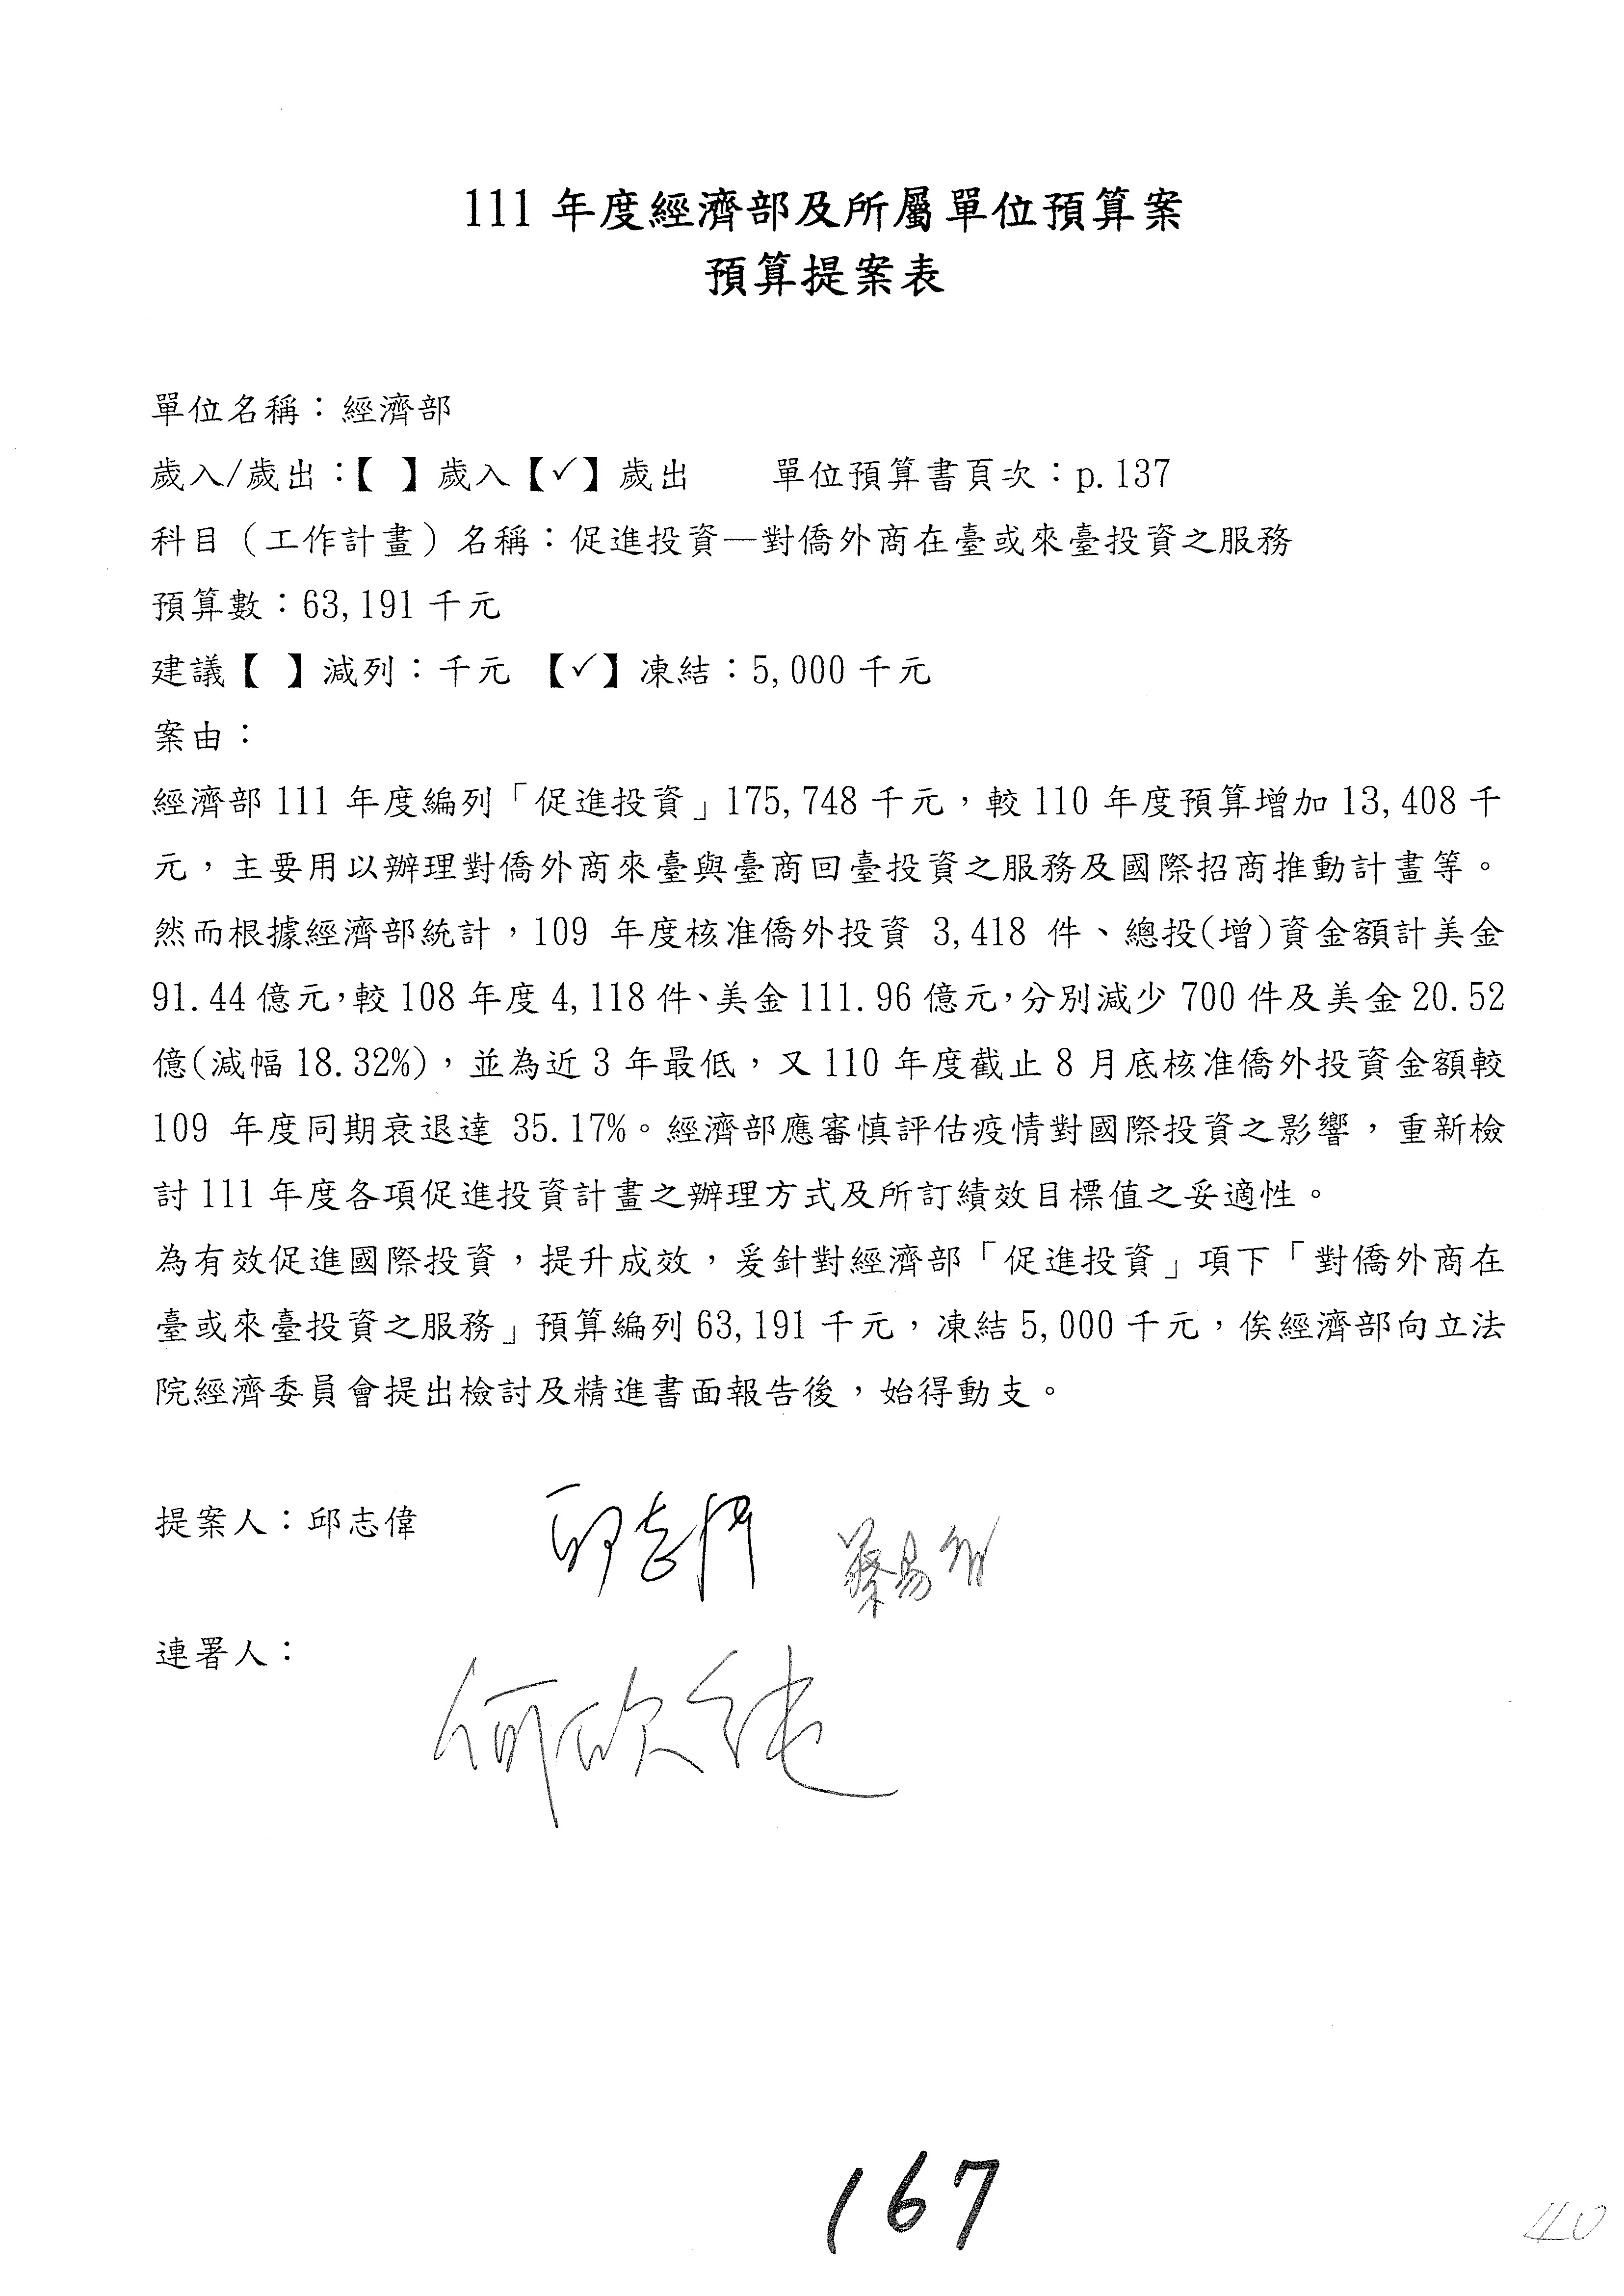 111 年度經濟部及所屬單位預算案
預算提案表
單位名稱：經濟部
歲入/歲出：【 】歲入【✓】歲出 單位預算書頁次：p.137
科目（工作計畫）名稱：促進投資—對僑外商在臺或來臺投資之服務
預算數：63,191 千元
建議【 】減列：千元 【✓】凍結：5,000 千元
案由：
經濟部 111 年度編列「促進投資」175,748 千元，較 110 年度預算增加 13,408 千
元，主要用以辦理對僑外商來臺與臺商回臺投資之服務及國際招商推動計畫等。
然而根據經濟部統計，109 年度核准僑外投資 3,418 件、總投(增)資金額計美金
91.44 億元，較 108 年度 4,118 件、美金 111.96 億元，分別減少 700 件及美金 20.52
億(減幅 18.32%)，並為近 3 年最低，又 110 年度截止 8 月底核准僑外投資金額較
109 年度同期衰退達 35.17%。經濟部應審慎評估疫情對國際投資之影響，重新檢
討 111 年度各項促進投資計畫之辦理方式及所訂績效目標值之妥適性。
為有效促進國際投資，提升成效，爰針對經濟部「促進投資」項下「對僑外商在
臺或來臺投資之服務」預算編列 63,191 千元，凍結 5,000 千元，俟經濟部向立法
院經濟委員會提出檢討及精進書面報告後，始得動支。
提案人：邱志偉 邱志偉 蔡易餘
連署人：
何欣純
167
40